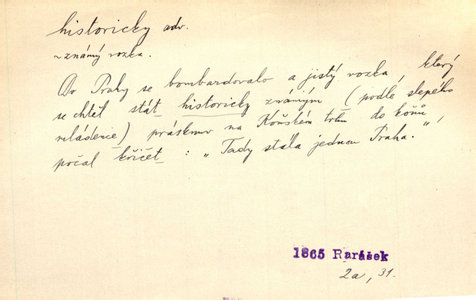 historicky adv.
~ známý vozka.
Do Prahy se bombardovalo a jistý vozka, který
se chtěl stát historicky známým (podle slepého
mládence) prásknuv na Koňském trhu do koňů
počal křičet: „Tady stála jednou Praha.“
1865 Rarášek
2a, 31.